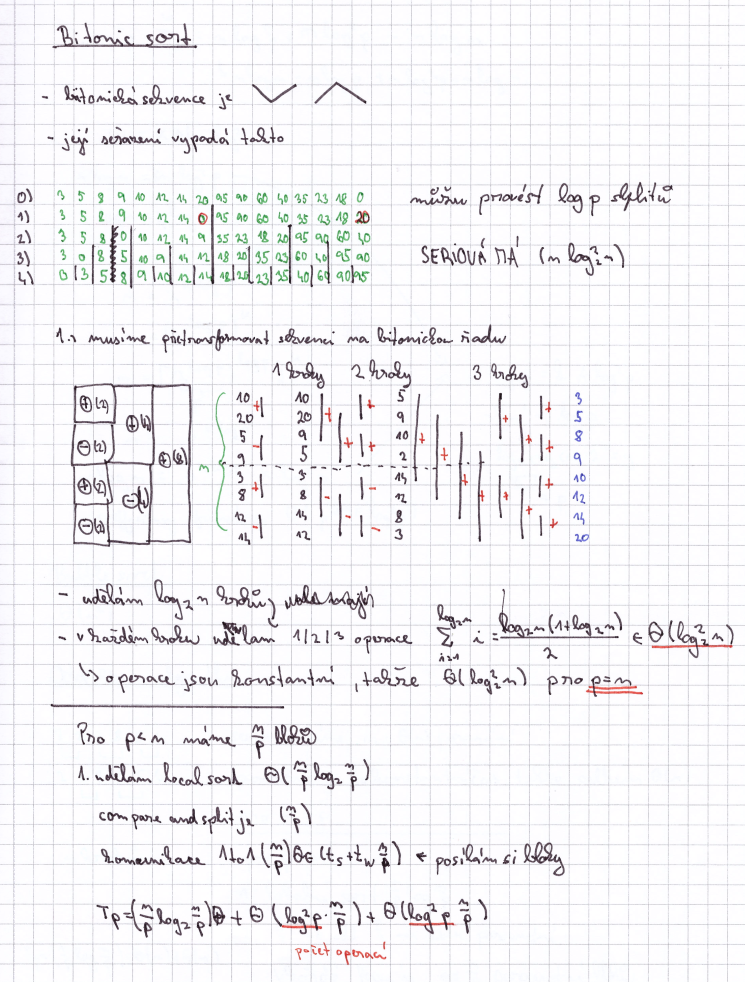 Bitonic sort
- bitonická sekvence je
- její seřazení vypadá takto
0) 3 5 8 9 10 12 14 20 95 90 60 40 35 23 18 0
1) 3 5 8 9 10 12 14 0 95 90 60 40 35 23 18 20
2) 3 5 8 0 10 12 14 9 35 23 18 20 95 90 60 40
3) 3 0 8 5 10 9 14 12 18 20 35 23 60 40 95 90
4) 0 3 5 8 9 10 12 14 18 20 23 35 40 60 90 95
můžu provést log p splitů
SERIOVÁ MÁ (n log₂² n)
1.: musíme přetransformovat sekvenci na bitonickou řadu
1 kroky 2 kroky 3 kroky
⊕(2) ⊕(4) ⊕(8)
⊖(2)
⊕(2) ⊖(4)
⊖(2)
n
10 + 10 + + 5 + + 3
20 20 9 5
5 - 9 + + 10 + + 8
9 5 2 9
3 + 3 - - 14 + + 10
8 8 12 12
12 - 14 - - 8 + + 14
14 12 3 20
- udělám log₂ n kroků,
- v každém kroku udělam 1/2/3 operace ∑ i=1 log₂n i = log₂n(1+log₂n) / 2 ∈ Θ(log₂² n)
↳ operace jsou konstantní, takže Θ(log₂² n) pro p=n
Pro p<n máme n/p bloků
1. udělám local sort Θ(n/p log₂ n/p)
compare and split je (n/p)
komunikace 1to1 (n/p) Θ∈ (ts + tw n/p) ← posílám si bloky
Tp = (n/p log₂ n/p)Θ + Θ (log² p · n/p) + Θ(log² p n/p)
počet operací